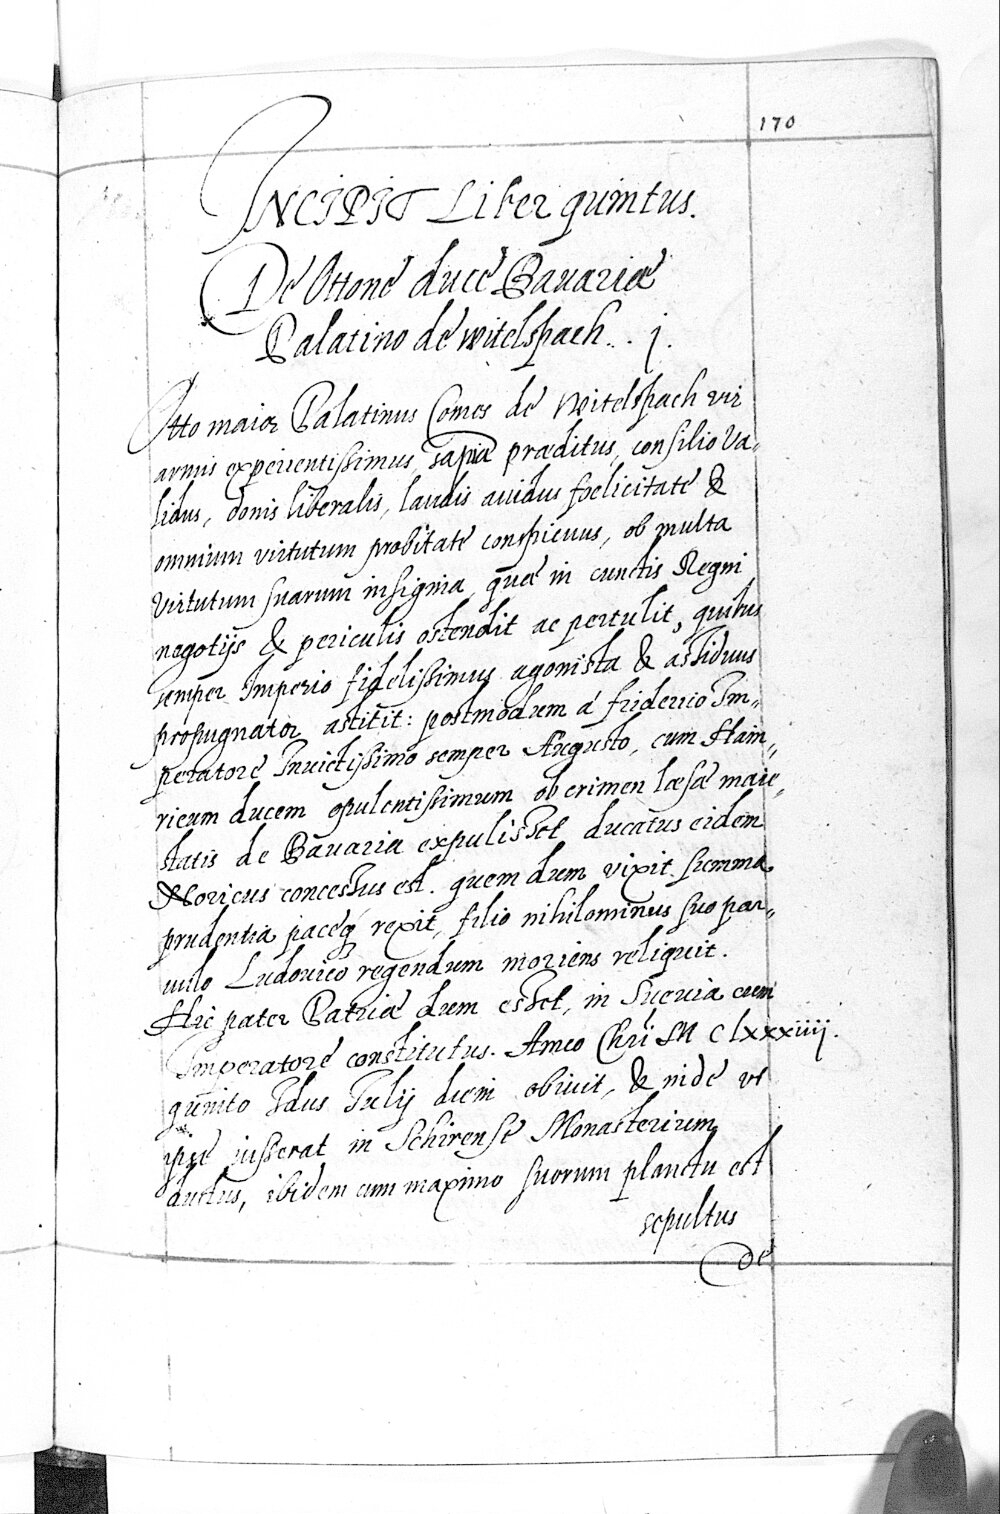 170
INCIPIT Liber quintus.
De Ottone duce Bavariæ
Palatino de witelspach. . j.
Otto maior Palatinus Comes de Witelspach vir
armis experientissimus, sapia præditus, consilio va-
lidus, donis liberalis, laudis avidus foelicitate &
omnium virtutum probitate conspicuus, ob multa
virtutum suarum insignia, quæ in cunctis Regni
negotijs & periculis ostendit ac pertulit, quibus
semper Imperio fidelissimus agonista & assiduus
propugnator astitit: postmodum á friderico Im-
peratore Invictissimo semper Augusto, cum Hain-
ricum ducem opulentissimum ob crimen læsæ maie-
statis de Bavaria expulisset, ducatus eidem
Noricus concessus est. quem dum vixit summa
prudentia paceq rexit, filio nihilominus suo par-
vulo Ludovico regendum moriens reliquit.
Hic pater Patriæ dum esset, in Suevia cum
Imperatore constitutus. Anno Chri M C lxxxiiij.
quinto Idus Iulij diem obivit, & inde vt
ipse iusserat in Schirense Monasterium
ductus, ibidem cum maximo suorum planctu est
sepultus
De